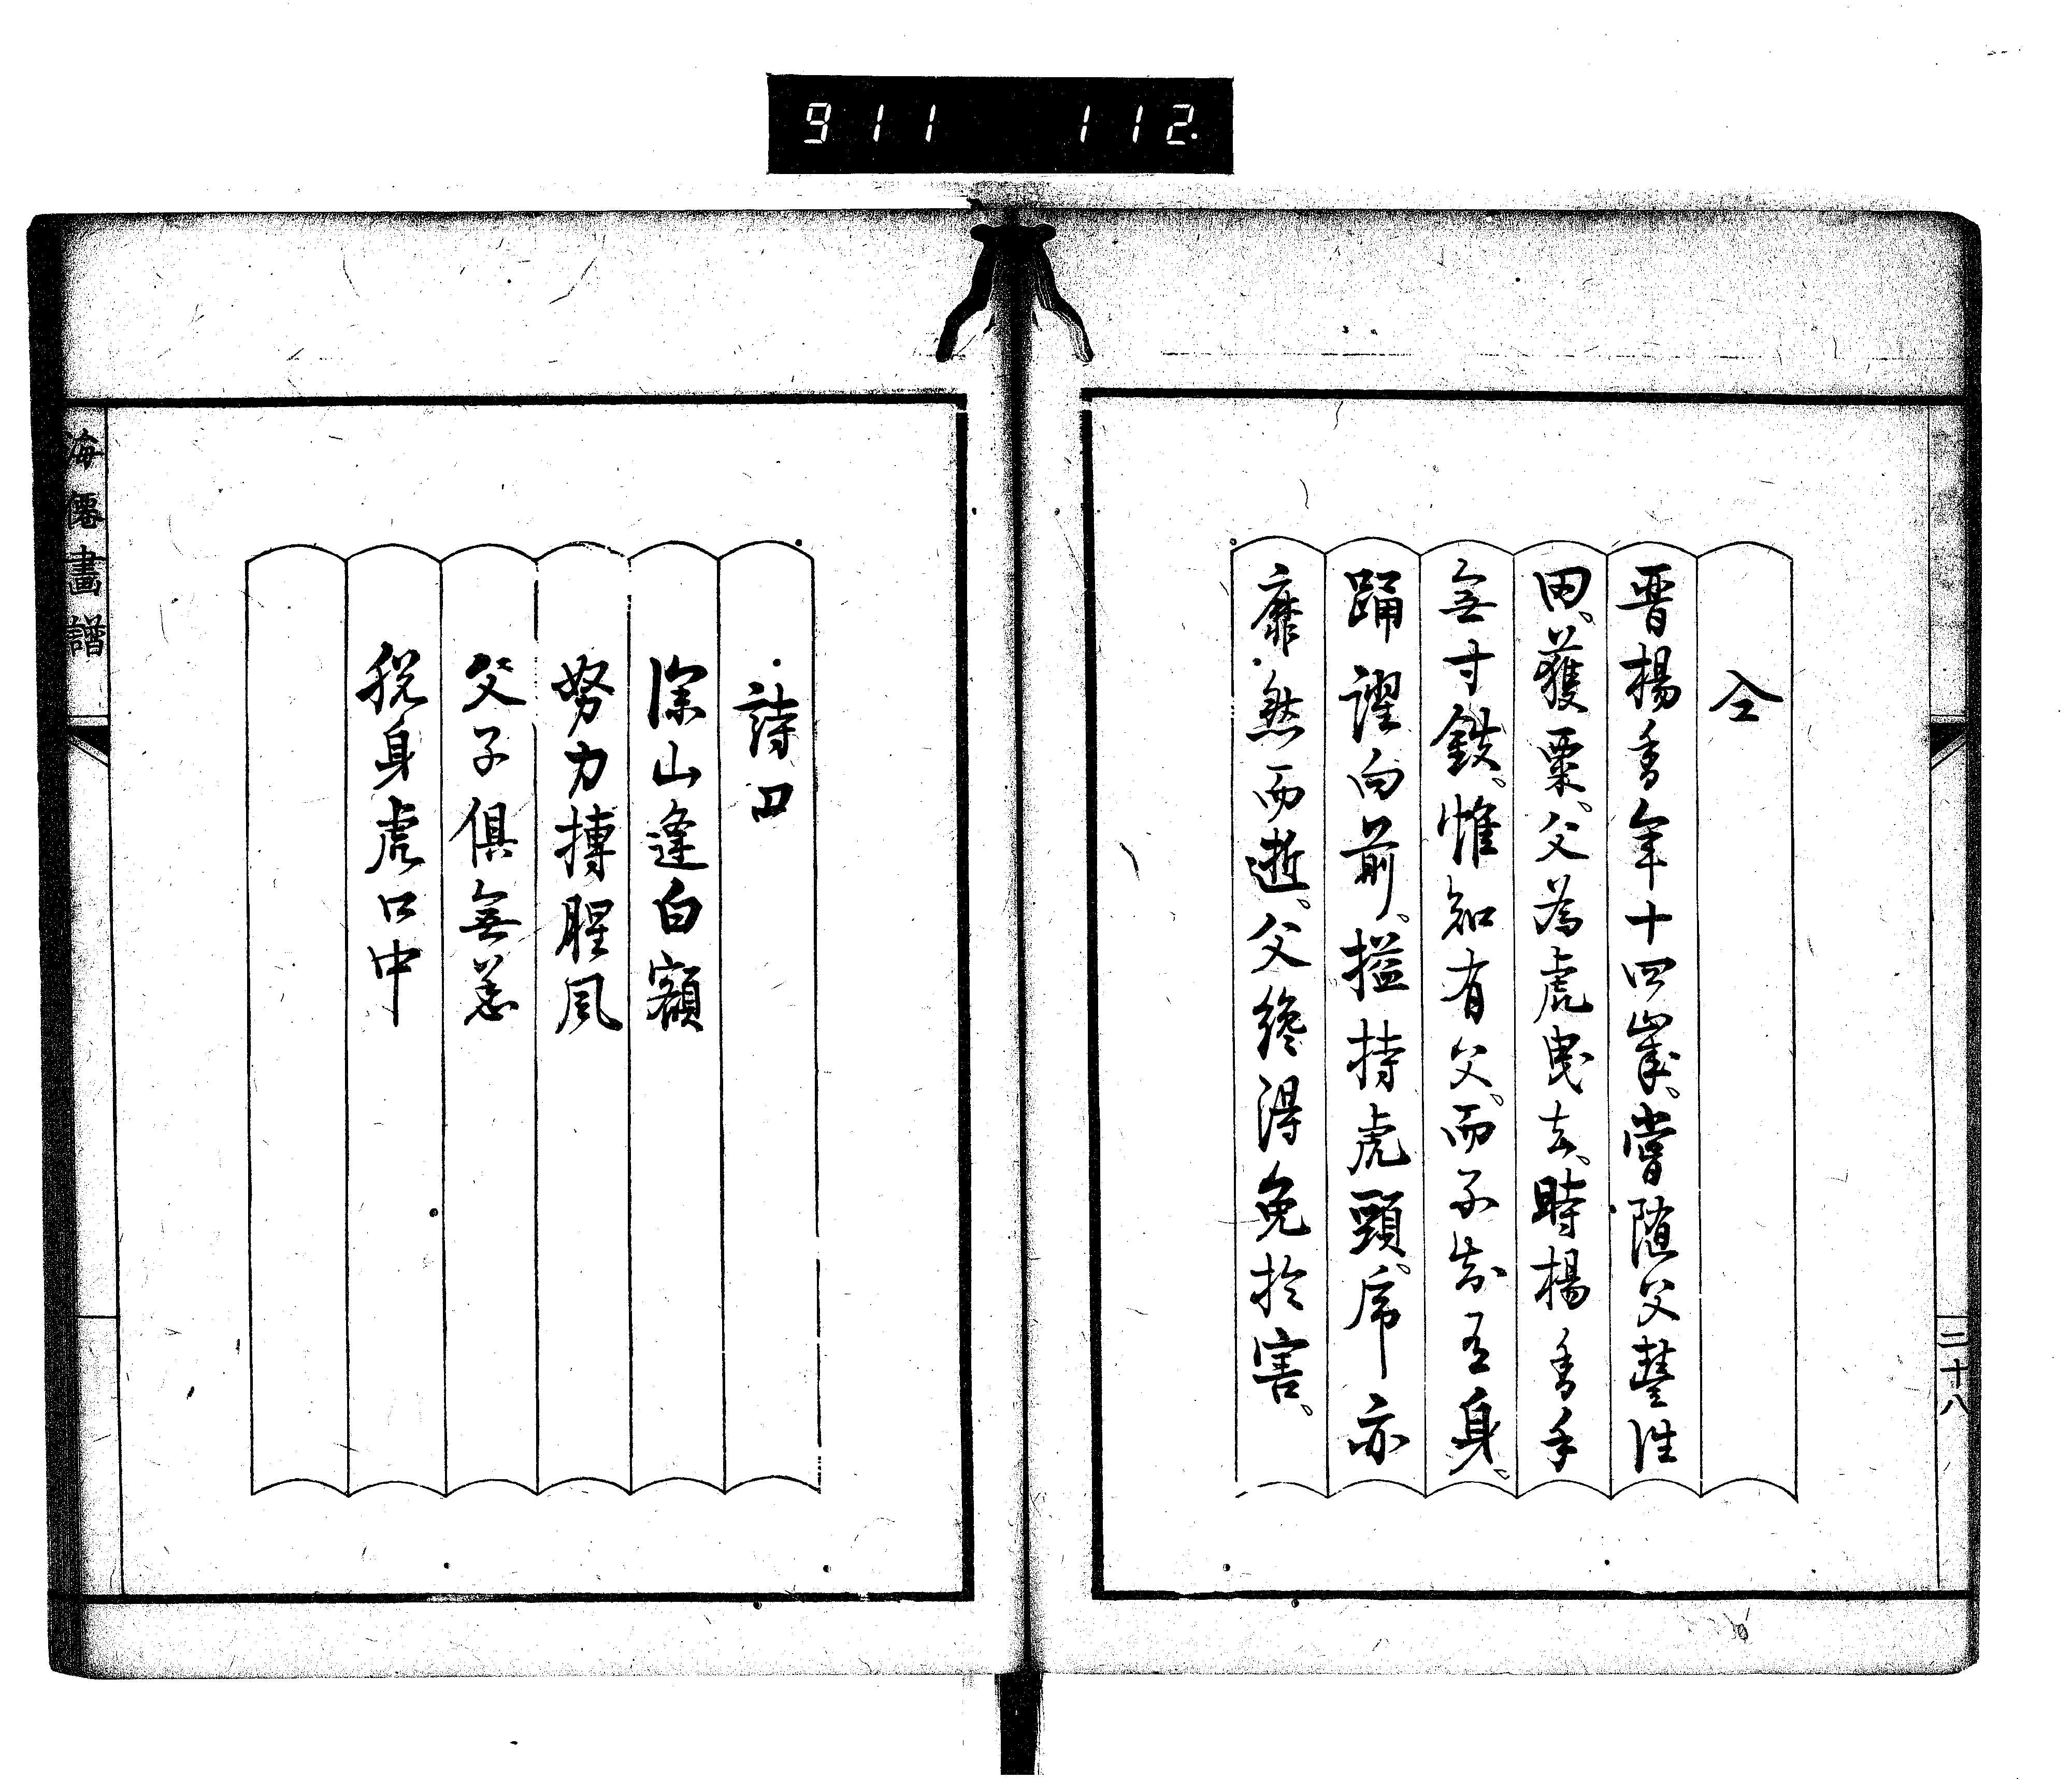 911 112
二十八
仝
晋楊香年十四歲。嘗随父豐往
田。獲粟。父為虎曳去。時楊香手
無寸鉄。惟知有父。而不知有身。
踊躍向前。搤持虎頸。虎亦
靡然而逝。父纔得免於害。
詩曰
深山逢白額
努力搏腥風
父子俱無恙
脱身虎口中
海僊畫譜